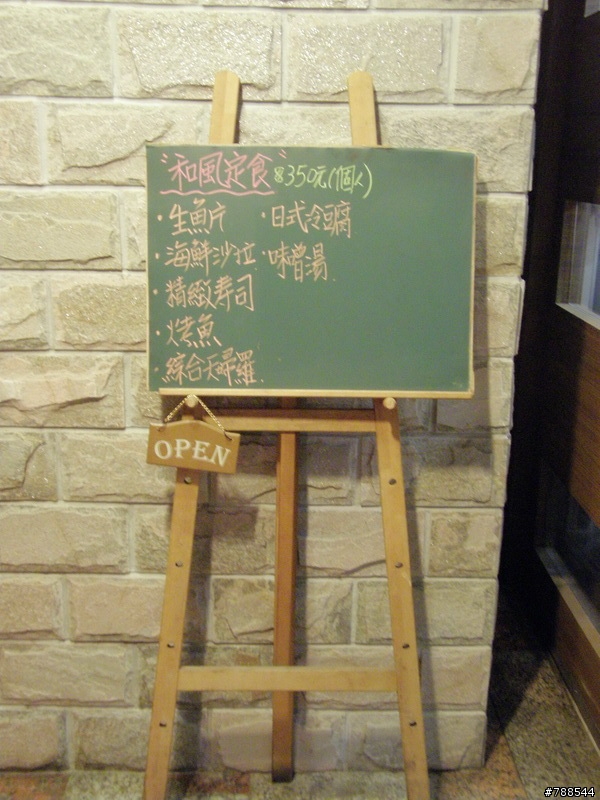 "和風定食" $350元(1個人)
·生魚片
·海鮮沙拉
·精緻壽司
·烤魚
·綜合天婦羅
·日式冷豆腐
·味噌湯
OPEN
#788544